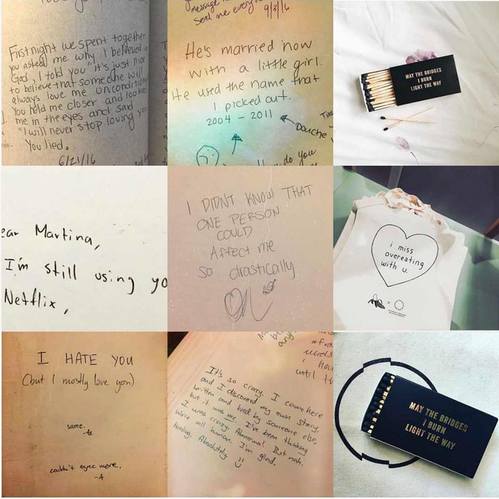 First night we spent together
you asked me why I believed in
God, I told you "it's just nice
to believe that someone will
always love me unconditionally"
You held me closer and looked
me in the eyes and said
"I will never stop loving you"
You lied.
6/21/16
message
sent me every
9/2/16
He's married now
with a little girl.
He used the name that
I picked out.
2004 - 2011
Douche
do you
MAY THE BRIDGES
I BURN
LIGHT THE WAY
ear Martina,
I'm still using yo
Netflix,
I DIDN'T KNOW THAT
ONE PERSON
COULD
AFFECT me
so drastically
i miss
overeating
with u.
I HATE YOU
(but I mostly love you)
same.
couldn't agree more.
-A
until th
It's so crazy. I came here
and I discovered my own story,
written and lived by someone else,
but it was me. I've been thinking
I was crazy. Abnormal. But no.
We're all human. I'm glad.
Absolutely
MAY THE BRIDGES
I BURN
LIGHT THE WAY